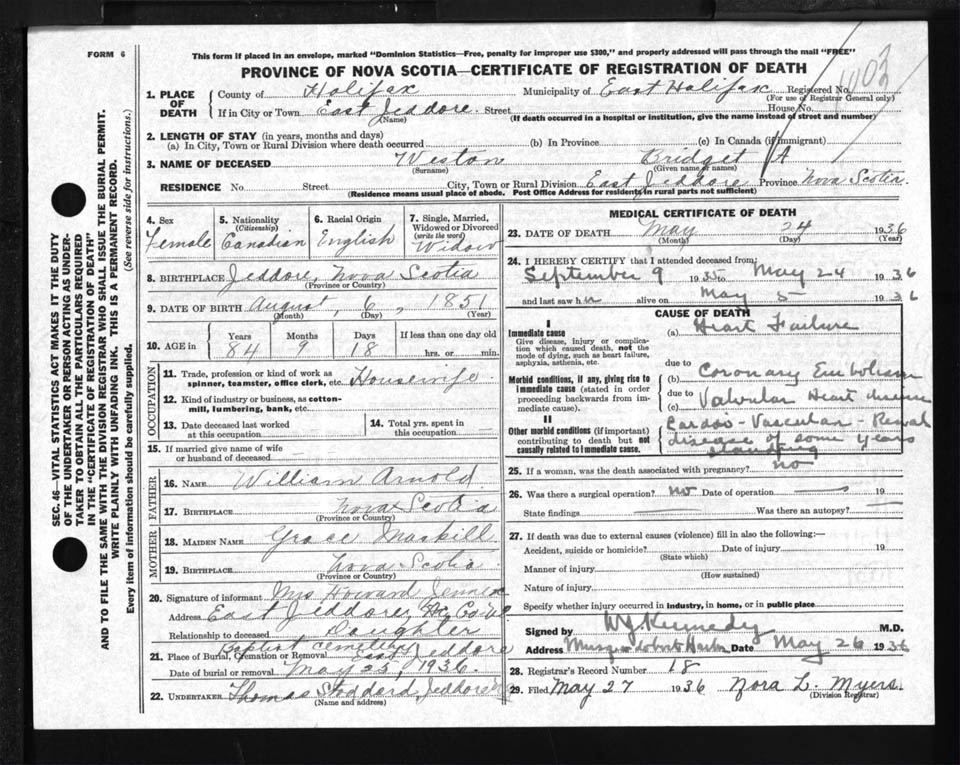 FORM 6
This form if placed in an envelope, marked "Dominion Statistics—Free, penalty for improper use $300," and properly addressed will pass through the mail "FREE"
PROVINCE OF NOVA SCOTIA—CERTIFICATE OF REGISTRATION OF DEATH
1. PLACE OF DEATH County of Halifax Municipality of East Halifax Registered No. 1103
(For use of Registrar General only)
If in City or Town East Jeddore Street House No.
(Name) (If death occurred in a hospital or institution, give the name instead of street and number)
2. LENGTH OF STAY (in years, months and days)
(a) In City, Town or Rural Division where death occurred (b) In Province (c) In Canada (if immigrant)
3. NAME OF DECEASED Weston Bridget A
(Surname) (Given name or names)
RESIDENCE No. Street City, Town or Rural Division East Jeddore Province Nova Scotia.
(Residence means usual place of abode. Post Office Address for residents in rural parts not sufficient)
SEC. 46—VITAL STATISTICS ACT MAKES IT THE DUTY
OF THE UNDERTAKER OR PERSON ACTING AS UNDER-
TAKER TO OBTAIN ALL THE PARTICULARS REQUIRED
IN THE "CERTIFICATE OF REGISTRATION OF DEATH"
AND TO FILE THE SAME WITH THE DIVISION REGISTRAR WHO SHALL ISSUE THE BURIAL PERMIT.
WRITE PLAINLY WITH UNFADING INK. THIS IS A PERMANENT RECORD.
Every item of information should be carefully supplied. (See reverse side for instructions.)
4. Sex Female
5. Nationality (Citizenship) Canadian
6. Racial Origin English
7. Single, Married, Widowed or Divorced (write the word) Widow
8. BIRTHPLACE Jeddore, Nova Scotia
(Province or Country)
9. DATE OF BIRTH August, 6, 1851
(Month) (Day) (Year)
10. AGE in Years 84 Months 9 Days 18 If less than one day old
hrs. or min.
OCCUPATION
11. Trade, profession or kind of work as
spinner, teamster, office clerk, etc. Housewife
12. Kind of industry or business, as cotton-
mill, lumbering, bank, etc.
13. Date deceased last worked
at this occupation
14. Total yrs. spent in
this occupation
15. If married give name of wife
or husband of deceased
FATHER
16. NAME William Arnold
17. BIRTHPLACE Nova Scotia
(Province or Country)
MOTHER
18. MAIDEN NAME Grace Maskill
19. BIRTHPLACE Nova Scotia
(Province or Country)
20. Signature of informant Mrs Howard Jennex
Address East Jeddore, Hfx Co
Relationship to deceased Daughter
21. Place of Burial, Cremation or Removal Baptist cemetery East Jeddore
Date of burial or removal May 25, 1936.
22. UNDERTAKER Thomas Stoddard, Jeddore
(Name and address)
MEDICAL CERTIFICATE OF DEATH
23. DATE OF DEATH May 24 1936
(Month) (Day) (Year)
24. I HEREBY CERTIFY that I attended deceased from:
September 9 1935 to May 24 1936
and last saw h alive on May 5 1936
CAUSE OF DEATH
I
Immediate cause (a) Heart Failure
Give disease, injury or complica-
tion which caused death, not the
mode of dying, such as heart failure,
asphyxia, asthenia, etc.
due to
Morbid conditions, if any, giving rise to
immediate cause (stated in order
proceeding backwards from im-
mediate cause).
(b) Coronary Embolism
due to
(c) Valvular Heart disease
II
Other morbid conditions (if important)
contributing to death but not
causally related to immediate cause.
Cardio-Vascular-Renal
disease of some years
standing
25. If a woman, was the death associated with pregnancy? no
26. Was there a surgical operation? no Date of operation 19
State findings Was there an autopsy?
27. If death was due to external causes (violence) fill in also the following:—
Accident, suicide or homicide? Date of injury 19
(State which)
Manner of injury
(How sustained)
Nature of injury
Specify whether injury occurred in industry, in home, or in public place
Signed by W J Kennedy M.D.
Address Musquodoboit Harbor Date May 26 1936
28. Registrar's Record Number 18
29. Filed May 27 1936 Nora L. Myers.
(Division Registrar)